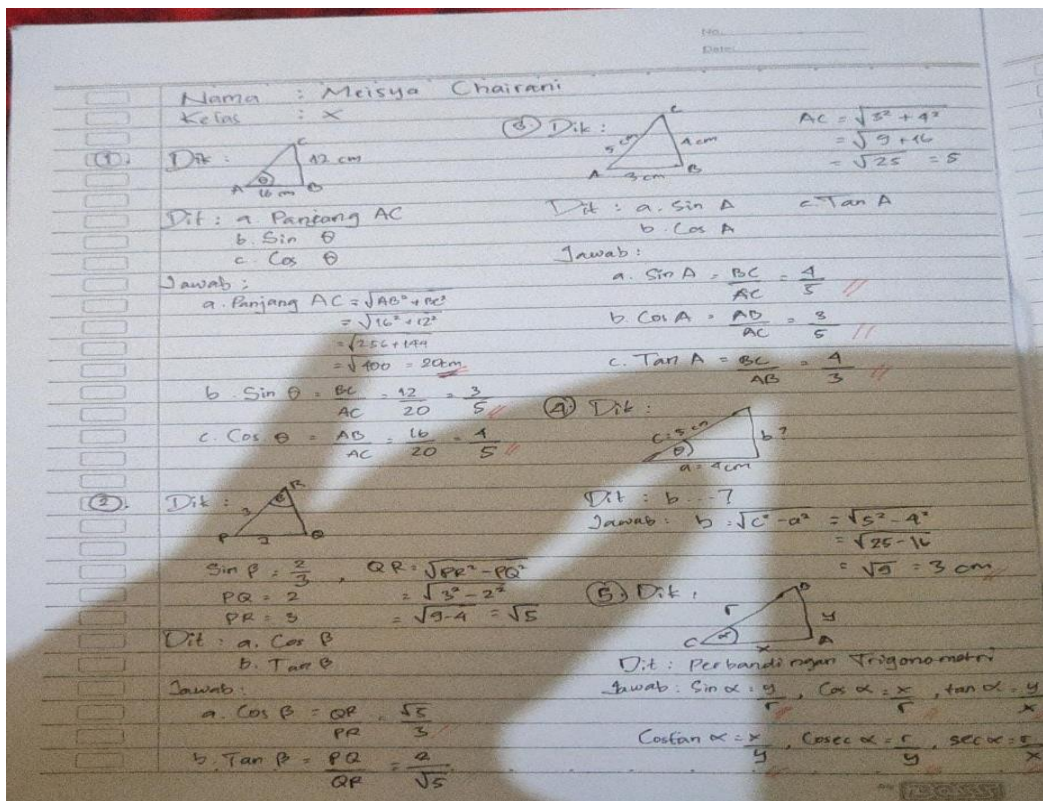 No.
Date:
Nama : Meisya Chairani
Kelas : X
① Dik :
C
12 cm
A θ B
16 cm
Dit : a Panjang AC
b. Sin θ
c. Cos θ
Jawab :
a. Panjang AC = √AB² + BC²
= √16² + 12²
= √256 + 144
= √400 = 20cm
b. Sin θ = BC/AC = 12/20 = 3/5 //
c. Cos θ = AB/AC = 16/20 = 4/5 //
② Dik :
R
3 β
P 2 Q
Sin β = 2/3 , QR = √PR² - PQ²
PQ = 2 = √3² - 2²
PR = 3 = √9-4 = √5
Dit : a. Cos β
b. Tan β
Jawab :
a. Cos β = QR/PR = √5/3
b. Tan β = PQ/QR = 2/√5
③ Dik :
C
5 cm 4 cm
A 3 cm B
AC = √3² + 4²
= √9 + 16
= √25 = 5
Dit : a. Sin A c. Tan A
b. Cos A
Jawab :
a. Sin A = BC/AC = 4/5 //
b. Cos A = AB/AC = 3/5 //
c. Tan A = BC/AB = 4/3 //
④ Dik :
c = 5 cm b ?
θ
a = 4 cm
Dit : b ... ?
Jawab : b = √c² - a² = √5² - 4²
= √25 - 16
= √9 = 3 cm
⑤ Dik :
B
r y
C α A
x
Dit : Perbandingan Trigonometri
Jawab : Sin α = y/r , Cos α = x/r , tan α = y/x
Costan α = x/y , Cosec α = r/y , sec α = r/x